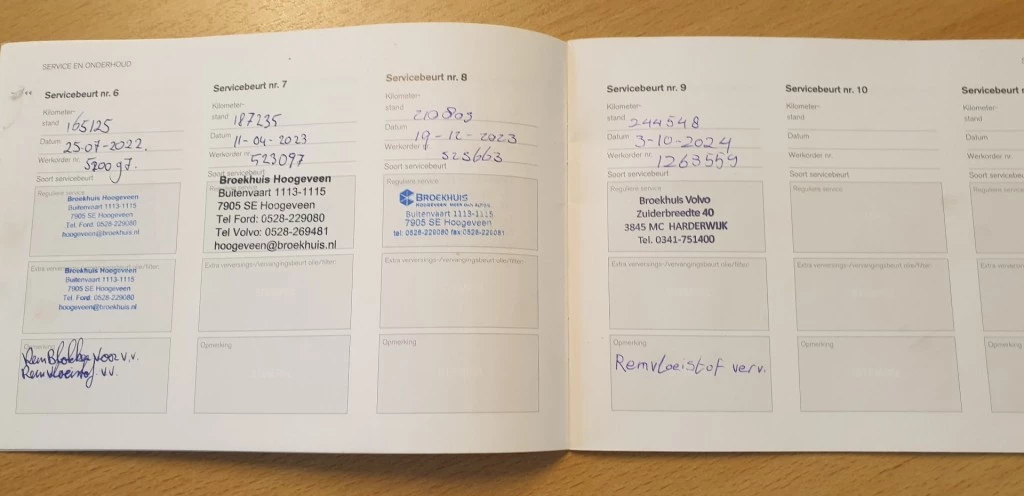 SERVICE EN ONDERHOUD
Servicebeurt nr. 6
Kilometer-
stand 165125
Datum 25-07-2022.
Werkorder nr.
Soort servicebeurt
Reguliere service
Broekhuis Hoogeveen
Buitenvaart 1113-1115
7905 SE Hoogeveen
Tel. Ford: 0528-229080
hoogeveen@broekhuis.nl
Extra verversings-/vervangingsbeurt olie/filter:
Broekhuis Hoogeveen
Buitenvaart 1113-1115
7905 SE Hoogeveen
Tel. Ford: 0528-229080
hoogeveen@broekhuis.nl
Opmerking
RemBlokken Voor v.v.
Remvloeistof v.v.
Servicebeurt nr. 7
Kilometer-
stand 187235
Datum 11-04-2023
Werkorder nr. 523097
Soort servicebeurt
Broekhuis Hoogeveen
Buitenvaart 1113-1115
7905 SE Hoogeveen
Tel Ford: 0528-229080
Tel Volvo: 0528-269481
hoogeveen@broekhuis.nl
Extra verversings-/vervangingsbeurt olie/filter:
Opmerking
Servicebeurt nr. 8
Kilometer-
stand 210803
Datum 19-12-2023
Werkorder nr. 525663
Soort servicebeurt
Reguliere service
BROEKHUIS
HOOGEVEEN MEER DAN AUTO'S
Buitenvaart 1113-1115
7905 SE Hoogeveen
tel. 0528-229080 fax:0528-229081
Extra verversings-/vervangingsbeurt olie/filter:
Opmerking
Servicebeurt nr. 9
Kilometer-
stand 244548
Datum 3-10-2024
Werkorder nr. 1263559
Soort servicebeurt
Reguliere service
Broekhuis Volvo
Zuiderbreedte 40
3845 MC HARDERWIJK
Tel. 0341-751400
Extra verversings-/vervangingsbeurt olie/filter:
Opmerking
Remvloeistof verv.
Servicebeurt nr. 10
Kilometer-
stand
Datum
Werkorder nr.
Soort servicebeurt
Reguliere service
Extra verversings-/vervangingsbeurt olie/filter:
Opmerking
Servicebeurt
Kilometer-
stand
Datum
Werkorder nr.
Soort servicebeurt
Reguliere service
Extra
Opmerking